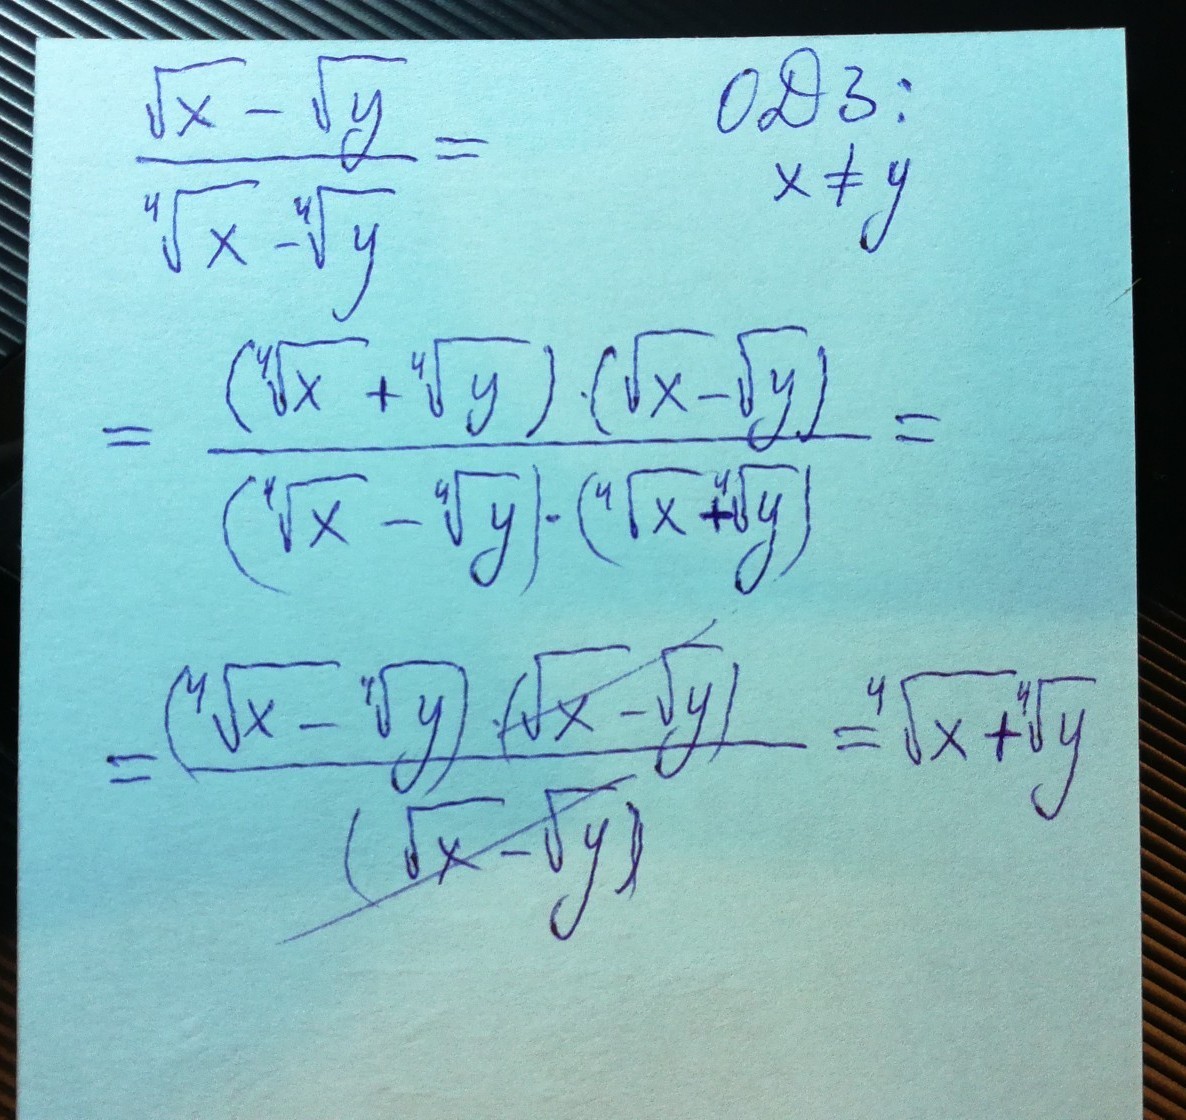 (√x - √y)/(⁴√x - ⁴√y) =
ОДЗ:
x ≠ y
= ((⁴√x + ⁴√y) · (√x - √y))/((⁴√x - ⁴√y) · (⁴√x + ⁴√y)) =
= ((⁴√x - ⁴√y) · (√x - √y))/((√x - √y)) = ⁴√x + ⁴√y